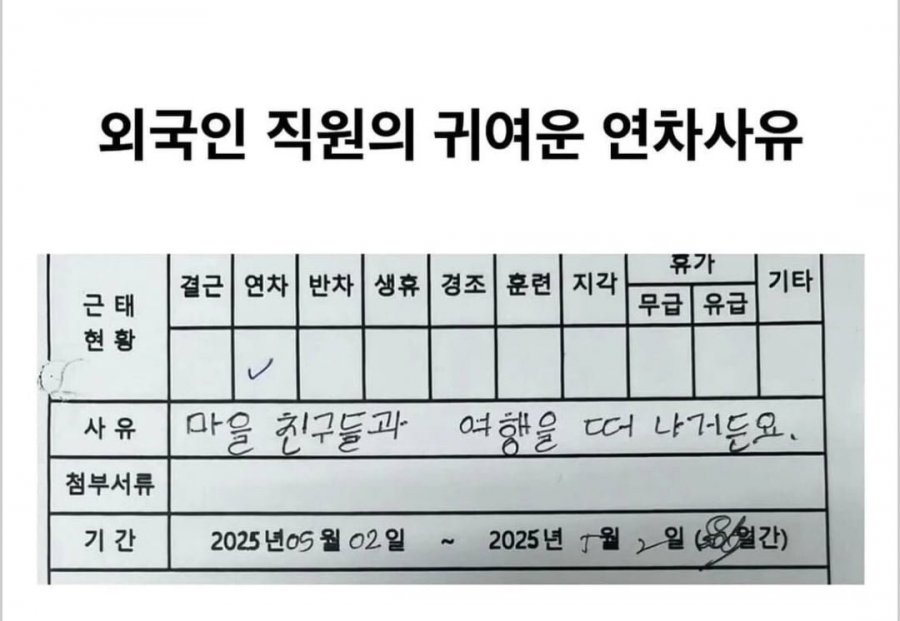 외국인 직원의 귀여운 연차사유
근태
현황
결근 연차 반차 생휴 경조 훈련 지각 휴가 기타
무급 유급
사유 마을 친구들과 여행을 떠나거든요.
첨부서류
기간 2025년 05월 02일 ~ 2025년 5월 2일 ( 월간)